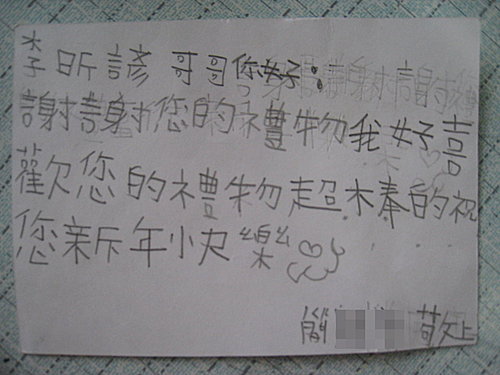 李昕諺 哥哥您好：
謝謝您的禮物我好喜
歡您的禮物超棒的祝
您新年快樂
簡 敬上